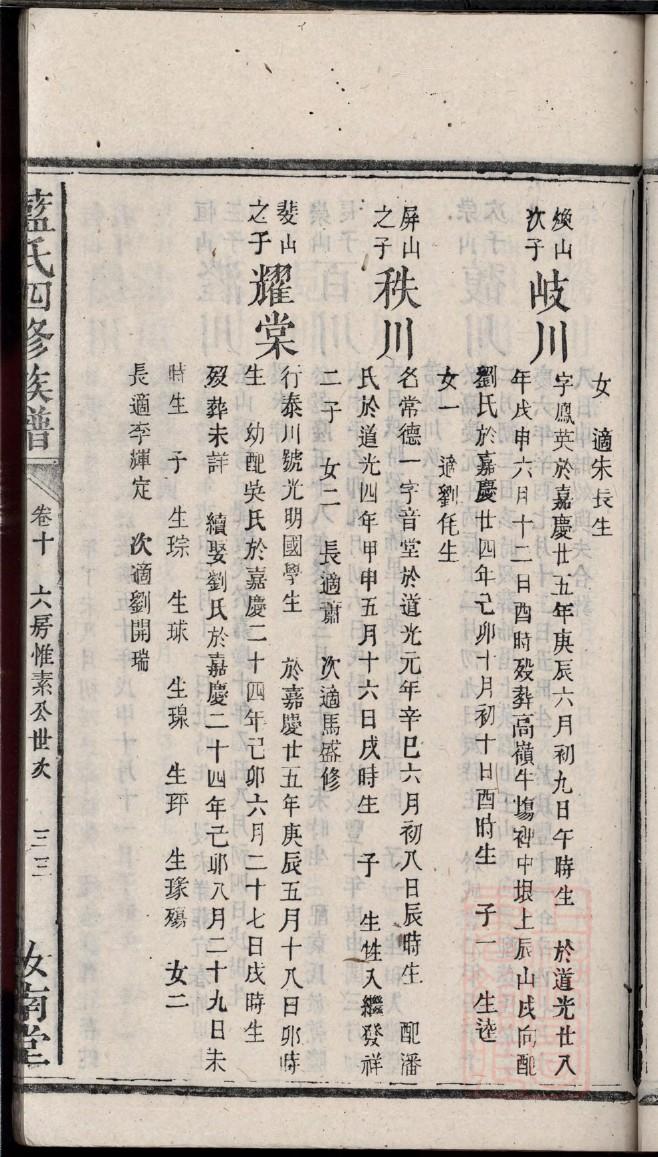 女　適朱長生
煥山
次子
岐川
字鳳英於嘉慶廿五年庚辰六月初九日午時生　於道光廿八
年戊申六月十二日酉時歿葬高嶺牛塲裡中垠上辰山戌向配
劉氏於嘉慶廿四年己卯十月初十日酉時生　子一　生逵
女一　適劉仛生
屏山
之子
秩川
名常德一字音堂於道光元年辛巳六月初八日辰時生　配潘
氏於道光四年甲申五月十六日戌時生　子　生甡入繼發祥
二子　女二　長適蕭　次適馬盛修
斐山
之子
耀棠
行泰川號光明國學生　於嘉慶廿五年庚辰五月十八日卯時
生　幼配吳氏於嘉慶二十四年己卯六月二十七日戌時生
歿葬未詳　續娶劉氏於嘉慶二十四年己卯八月二十九日未
時生　子　生琮　生球　生璟　生玶　生瑑殤　女二
長適李輝定　次適劉開瑞
藍氏四修族譜
卷十　六房惟素公世次　三三
汝南堂